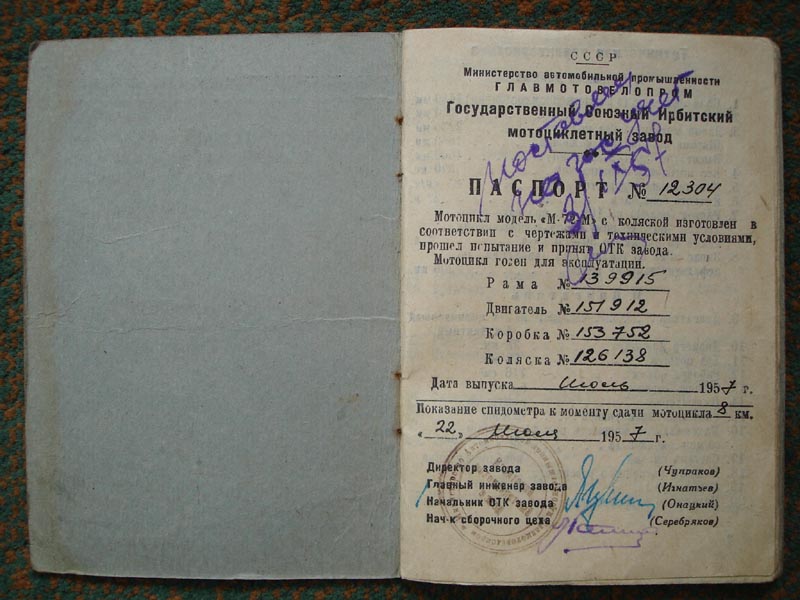 СССР
Министерство автомобильной промышленности
ГЛАВМОТОВЕЛОПРОМ
Государственный Союзный Ирбитский
мотоциклетный завод
ПАСПОРТ № 12304
Мотоцикл модель «М-72-М» с коляской изготовлен в
соответствии с чертежами и техническими условиями,
прошел испытание и принят ОТК завода.
Мотоцикл годен для эксплуатации.
Рама № 139915
Двигатель № 151912
Коробка № 153752
Коляска № 126138
Дата выпуска Июль 1957 г.
Показание спидометра к моменту сдачи мотоцикла 8 км.
«22» Июля 1957 г.
Директор завода (Чупраков)
Главный инженер завода (Игнатьев)
Начальник ОТК завода (Онацкий)
Нач-к сборочного цеха (Серебряков)